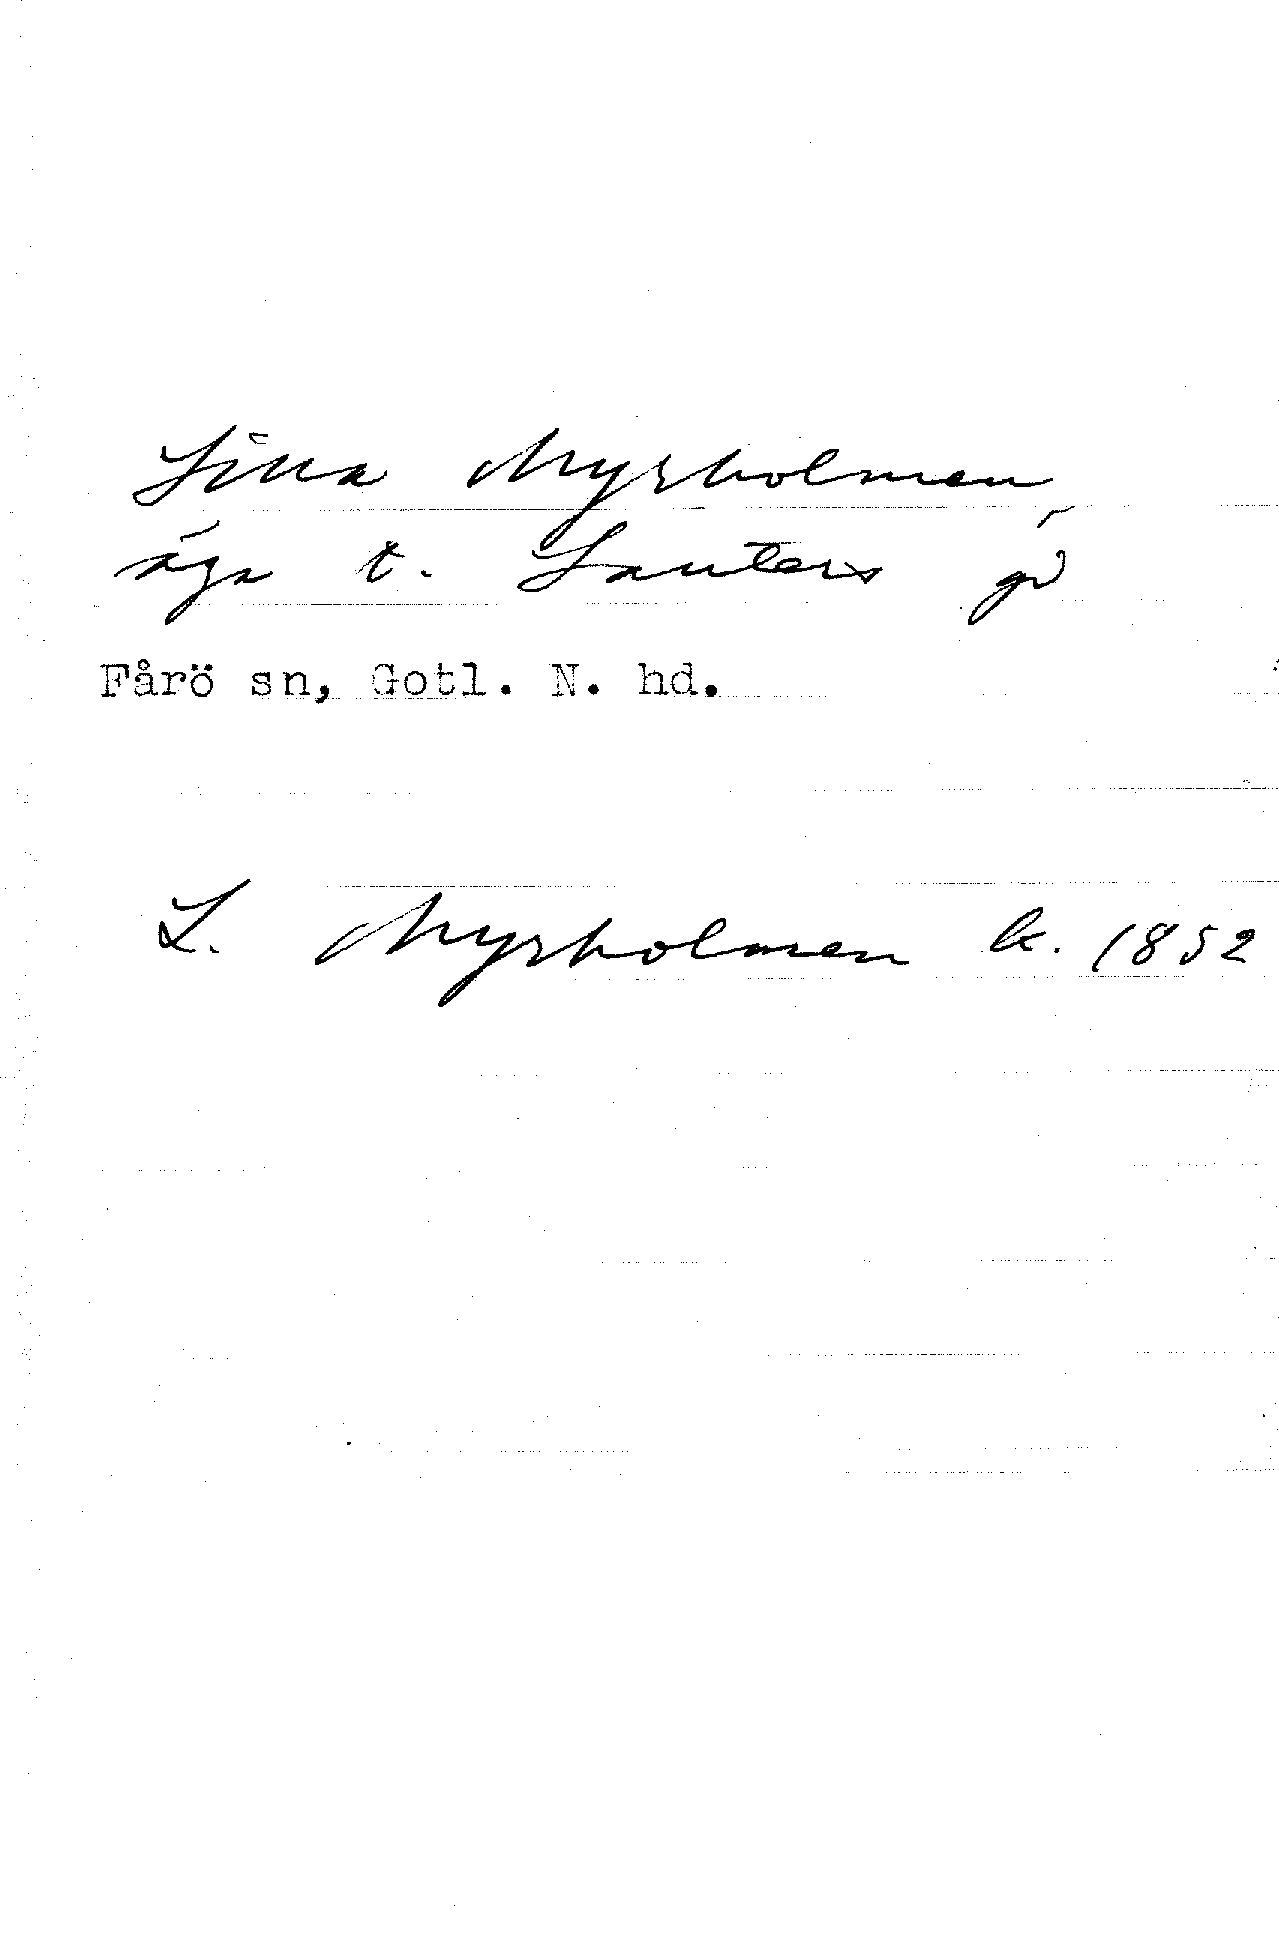 Lilla Myrholmen
äga t. Lauters gd
Fårö sn, Gotl. N. hd.
L. Myrholmen k. 1852